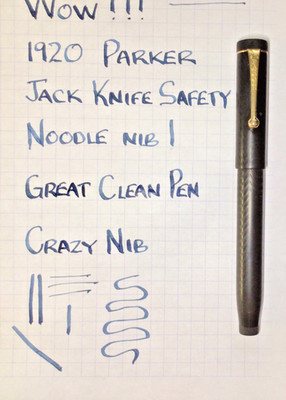 WOW!!!
1920 PARKER
JACK KNIFE SAFETY
NOODLE NIB !
GREAT CLEAN PEN
CRAZY NIB